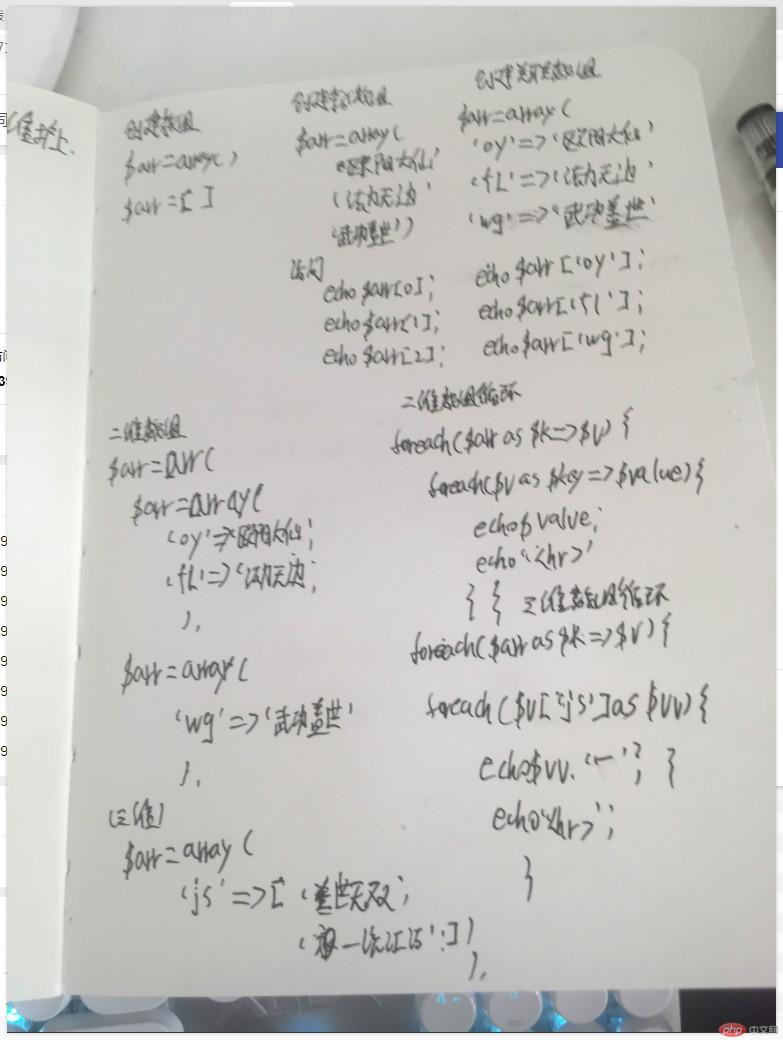 创建数组
$arr=array()
$arr=[ ]
创建索引数组
$arr=array(
'欧阳大仙'
'法力无边'
'武功盖世')
访问
echo $arr[0];
echo $arr[1];
echo $arr[2];
创建关联数组
$arr=array(
'oy'=>'欧阳大仙'
'fL'=>'法力无边'
'wg'=>'武功盖世'
echo $arr['oy'];
echo $arr['fl'];
echo $arr['wg'];
二维数组
$arr=arr(
$arr=array(
'oy'=>'欧阳大仙;
'fL'=>'法力无边;
),
$arr=array(
'wg'=>'武功盖世'
),
(三维)
$arr=array(
'js'=>[ '盖世无双;
一统江湖';])
),
二维数组循环
foreach($arr as $k=>$v){
foreach($v as $key=>$value){
echo$value;
echo'<hr>'
}} 三维数组循环
foreach($arr as $k=>$v){
foreach($v['js']as $vv){
echo$vv.'—'; }
echo'<hr>';
}
php 中文网